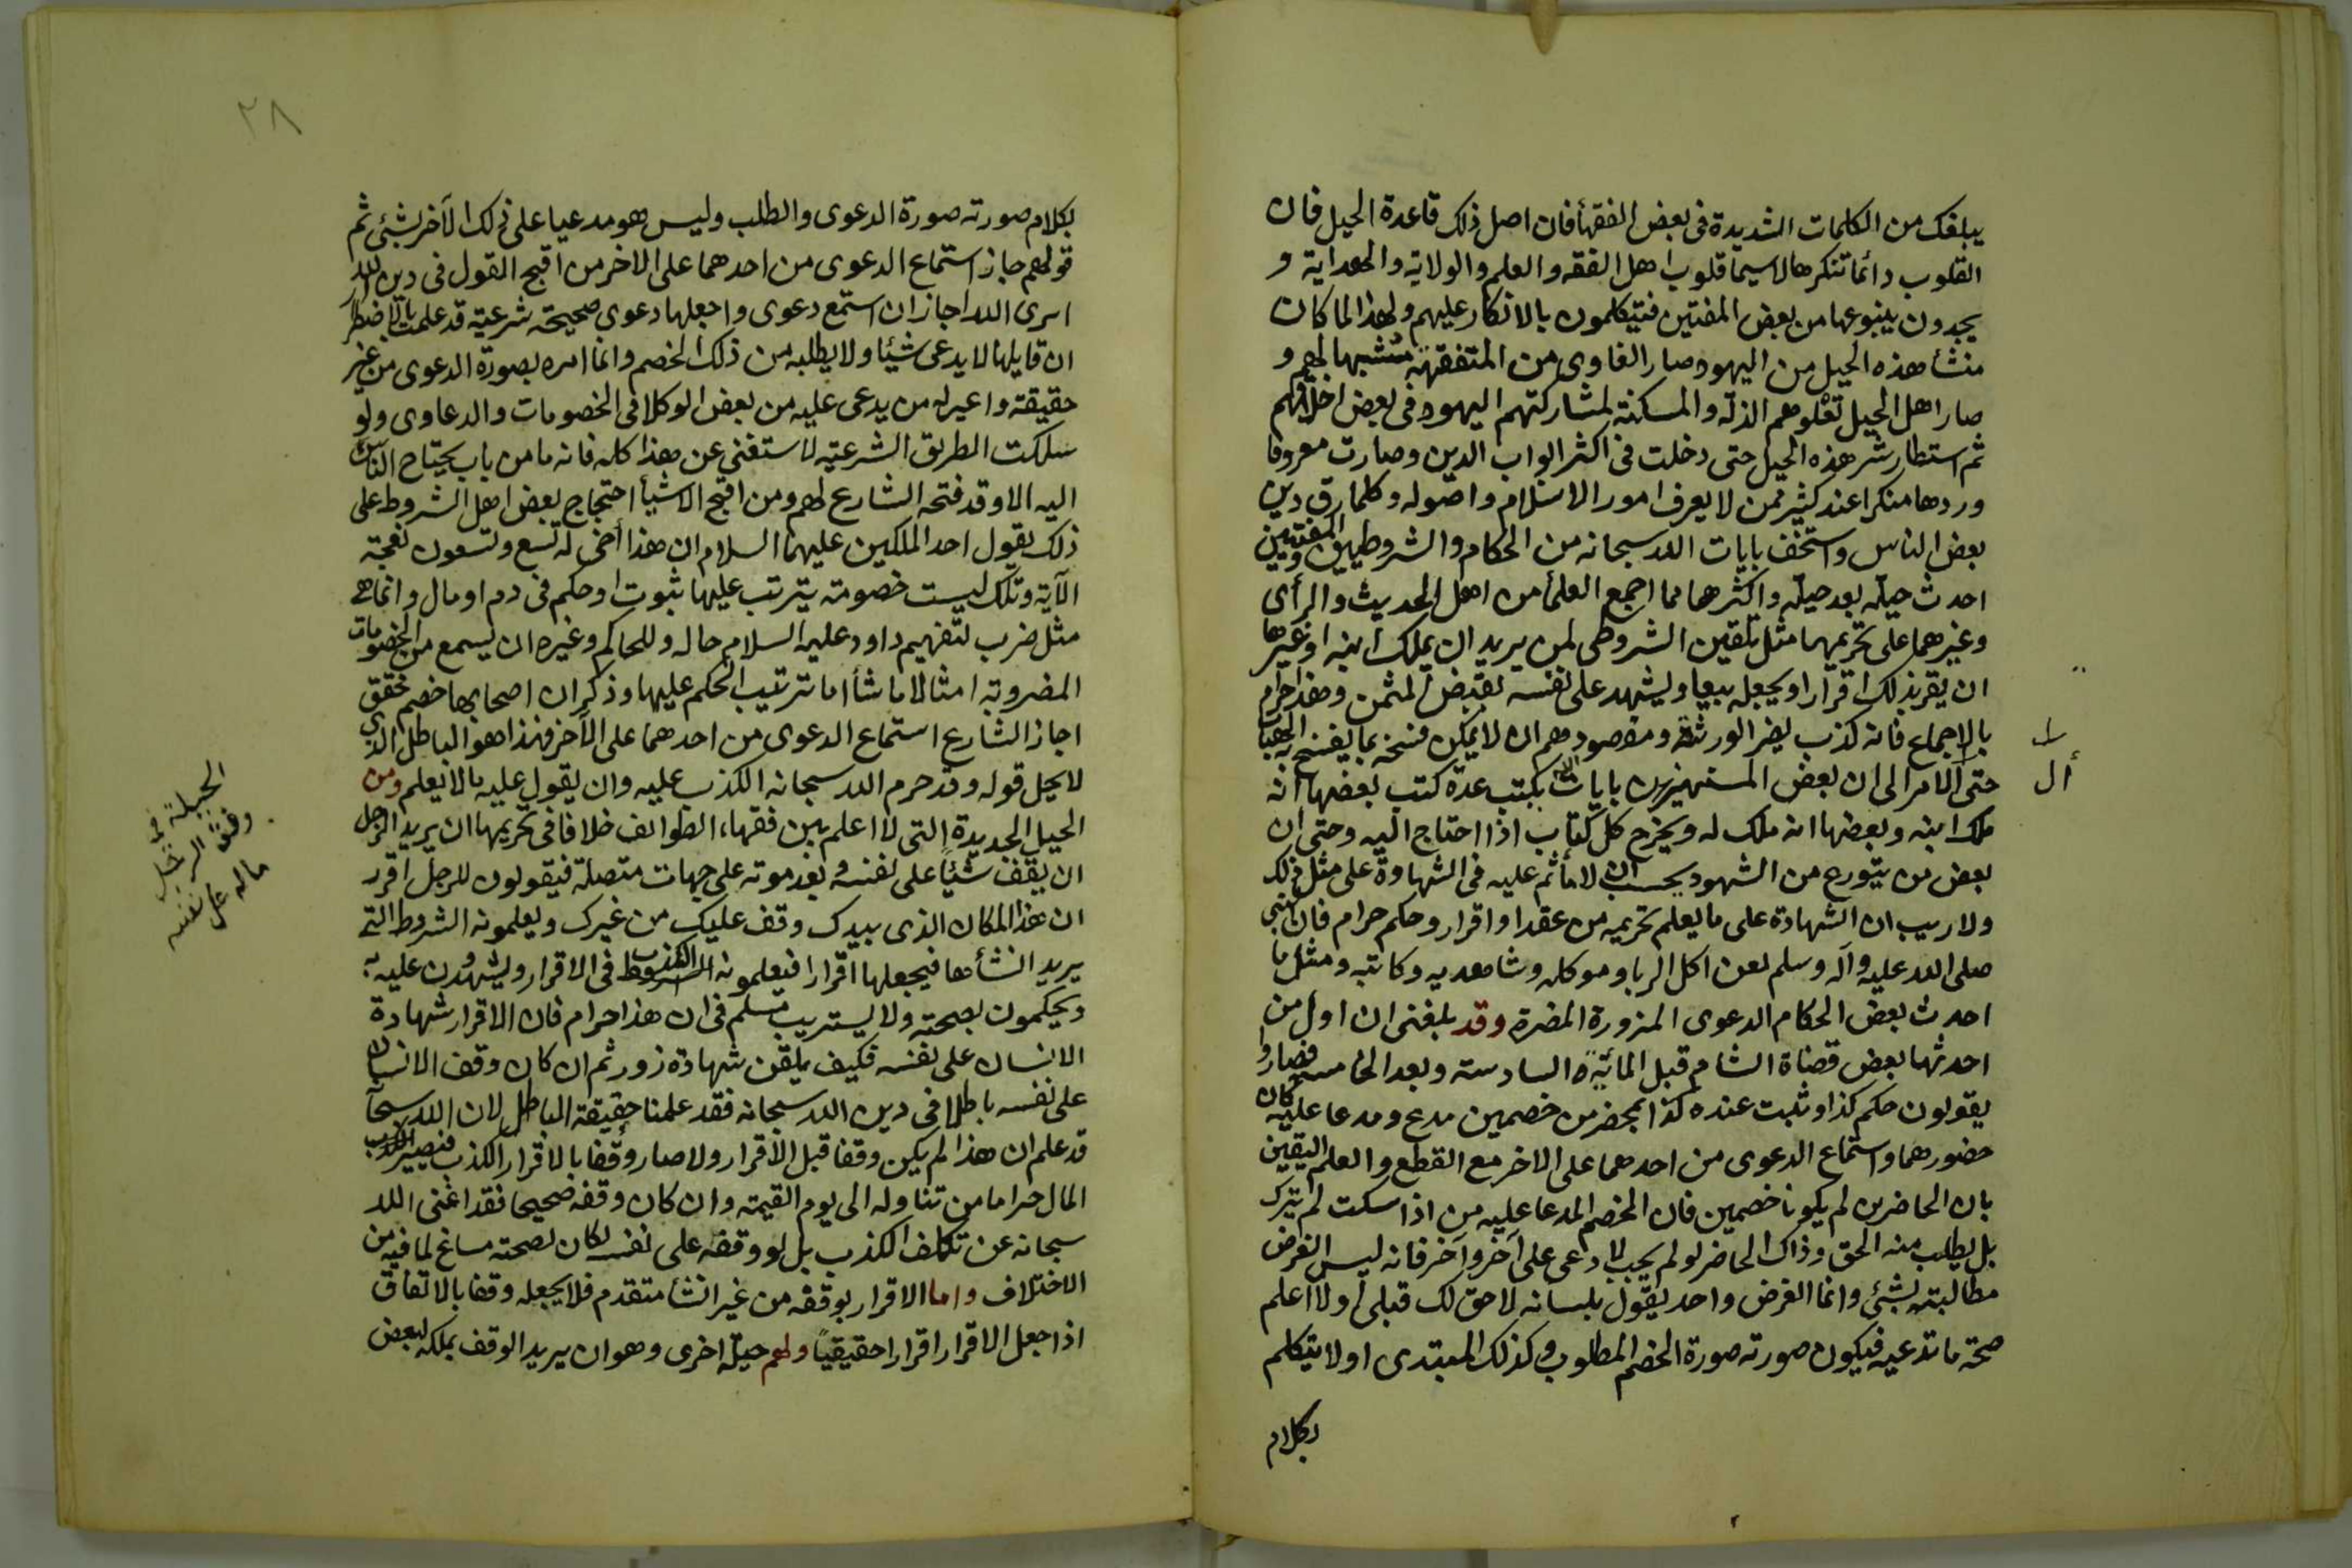 يبلغك من الكلمات الشديدة فى بعض الفقهأ فان اصل ذلك قاعدة الحيل فان
القلوب دائما تنكرها لاسيما قلوب اهل الفقه والعلم والولاية والهداية و
يجدون ينبوعها من بعض المفتين فيتكلمون بالانكار عليهم ولهذا لما كان
منشأ هذه الحيل من اليهود صار الغاوى من المتفقهة متشبها بهم و
صار اهل الحيل تعلوهم الذلة والمسكنة لمشاركتهم اليهود فى بعض اخلاقهم
ثم استطار شر هذه الحيل حتى دخلت فى اكثر ابواب الدين وصارت معروفا
وردها منكرا عند كثير ممن لا يعرف امور الاسلام واصوله وكلما رق دين
بعض الناس واستخف بايات الله سبحانه من الحكام والشروطيين والمفتيين
احدث حيلة بعد حيلة واكثرها مما اجمع العلمأ من اهل الحديث والرأى
وغيرهما على تحريمها مثل تلقين الشروطى لمن يريد ان يملك ابنه او غيرها
ان يقر بذلك اقرارا او يجعله بيعا ويشهد على نفسه بقبض الثمن وهذا حرام
بالاجماع فانه كذب يضر الورثة ومقصودهم ان لا يمكن فسخه بما يفسخ به الهبات
حتى آل الامر الى ان بعض المستهزين بايات الله يكتب عدة كتب بعضها انه
ملك ابنه وبعضها انه ملك له ويخرج كل كتاب اذا احتاج اليه وحتى ان
بعض من يتورع من الشهود يحسب ان لا مأثم عليه فى الشهادة على مثل ذلك
ولا ريب ان الشهادة على ما يعلم تحريمه من عقد او اقرار وحكم حرام فان النبى
صلى الله عليه وآله وسلم لعن اكل الربا وموكله وشاهديه وكاتبه ومثل ما
احدث بعض الحكام الدعوى المزورة المضرة وقد بلغنى ان اول من
احدثها بعض قضاة الشام قبل المائية السادسة وبعد الخامسة فصاروا
يقولون حكم كذا وثبت عنده كذا بمحضر من خصمين مدع ومدعا عليه كان
حضورهما واستماع الدعوى من احدهما على الاخر مع القطع والعلم اليقين
بان الحاضرين لم يكونا خصمين فان الخصم المدعا عليه من اذا سكت لم يترك
بل يطلب منه الحق وذاك الحاضر لو لم يجب لادعى على آخر وآخر فانه ليس الغرض
مطالبته بشئ وانما الغرض واحد يقول بلسانه لا حق لك قبلى او لا اعلم
صحة ما تدعيه فيكون صورته صورة الخصم المطلوب وكذلك المبتدى اولا يتكلم
بكلام
أل
٢٨
بكلام صورته صورة الدعوى والطلب وليس هو مدعيا على ذلك الآخر بشئى ثم
قولهم جاز استماع الدعوى من احدهما على الاخر من اقبح القول فى دين الله
اترى الله اجاز ان استمع دعوى واجعلها دعوى صحيحة شرعية قد علمت بالاضطرار
ان قايلها لا يدعى شيئا ولا يطلبه من ذلك الخصم وانما امره بصورة الدعوى من غير
حقيقة واعير له من يدعى عليه من بعض الوكلا فى الخصومات والدعاوى ولو
سلكت الطريق الشرعية لاستغنى عن هذا كله فانه ما من باب يحتاج الناس
اليه الا وقد فتحه الشارع لهم ومن اقبح الاشيأ احتجاج بعض اهل الشروط على
ذلك بقول احد الملكين عليهما السلام ان هذا أخى له تسع وتسعون نعجة
الآية وتلك ليست خصومة يترتب عليها ثبوت او حكم فى دم او مال وانما هى
مثل ضرب لتفهيم داود عليه السلام حاله وللحاكم وغيره ان يسمع من الخصومات
المضروبة امثالا ما شأ اما ترتيب الحكم عليها وذكر ان اصحابها خصم محقق
اجاز الشارع استماع الدعوى من احدهما على الآخر فهذا هو الباطل الذى
لا يحل قوله وقد حرم الله سبحانه الكذب عليه وان يقول عليه ما لا يعلم ومن
الحيل الجديدة التى لا اعلم بين فقهاء الطوائف خلافا فى تحريمها ان يريد الرجل
ان يقف شيئا على نفسه وبعد موته على جهات متصلة فيقولون للرجل اقرر
ان هذا المكان الذى بيدك وقف عليك من غيرك ويعلمونه الشروط التى
يريد انشأها فيجعلها اقرارا فيعلمونه الكذب فى الاقرار ويشهدون عليه به
ويحكمون بصحته ولا يستريب مسلم فى ان هذا حرام فان الاقرار شهادة
الانسان على نفسه فكيف يلقن شهادة زور ثم ان كان وقف الانسان
على نفسه باطلا فى دين الله سبحانه فقد علمنا حقيقة الباطل لان الله سبحانه
قد علم ان هذا لم يكن وقفا قبل الاقرار ولا صار وقفا بالاقرار الكذب فيصير
المال حراما من تناوله الى يوم القيمة وان كان وقفه صحيحا فقد اغنى الله
سبحانه عن تكلف الكذب بل لو وقفه على نفسه لكان لصحته مساغ لما فيه من
الاختلاف واما الاقرار بوقفه من غير انشأ متقدم فلا يجعله وقفا بالاتفاق
اذا جعل الاقرار اقرارا حقيقيًا ولهم حيلة اخرى وهو ان يريد الوقف يملكه لبعض
الحيلة فى
وقف الرجل
ماله على نفسه